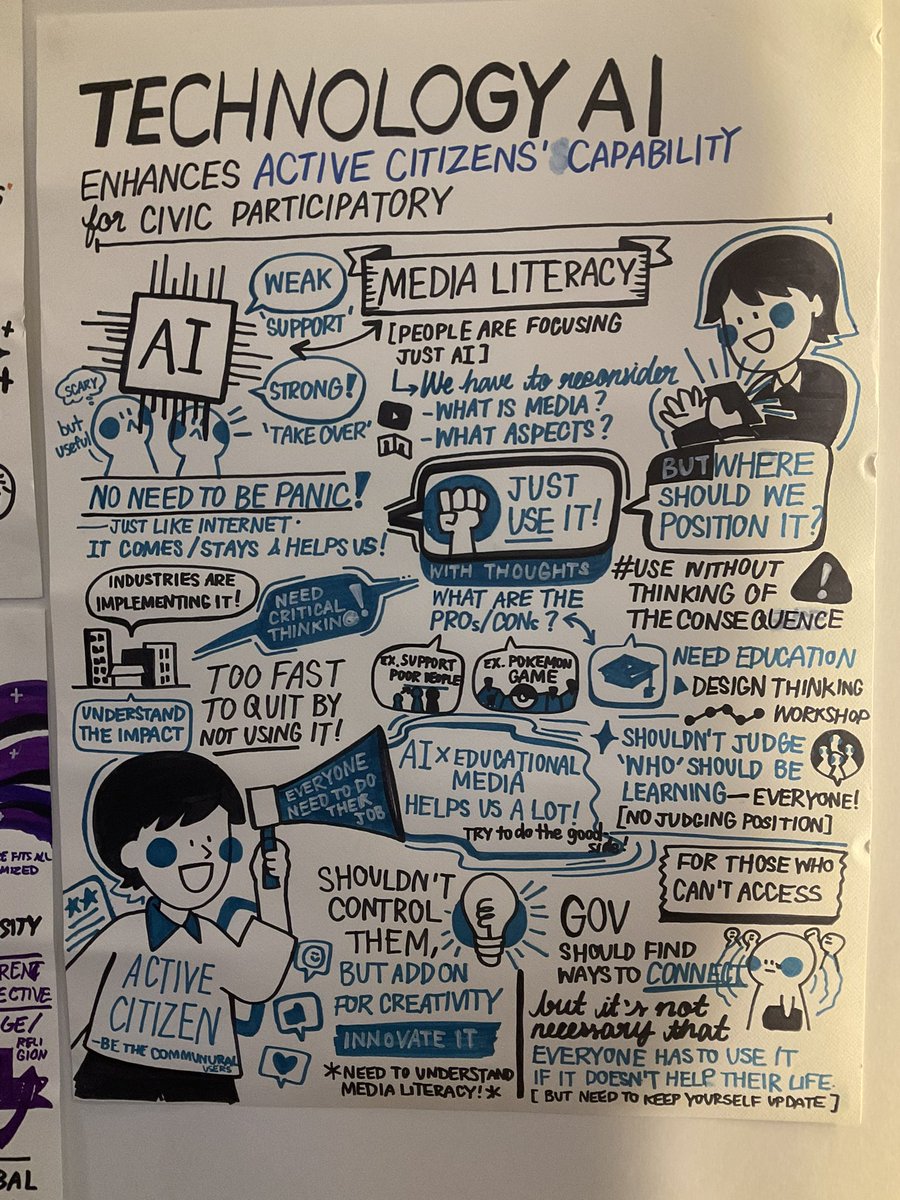 TECHNOLOGY AI
ENHANCES ACTIVE CITIZENS' CAPABILITY
for CIVIC PARTICIPATORY
AI
WEAK
'SUPPORT'
STRONG!
'TAKE OVER'
SCARY
but
useful
MEDIA LITERACY
[PEOPLE ARE FOCUSING
JUST AI]
We have to reconsider
-WHAT IS MEDIA?
-WHAT ASPECTS?
NO NEED TO BE PANIC!
—JUST LIKE INTERNET.
IT COMES/STAYS & HELPS US!
JUST
USE IT!
WITH THOUGHTS
BUT WHERE
SHOULD WE
POSITION IT?
#USE WITHOUT
THINKING OF
THE CONSEQUENCE
!
INDUSTRIES ARE
IMPLEMENTING IT!
NEED
CRITICAL
THINKING!
UNDERSTAND
THE IMPACT
TOO FAST
TO QUIT BY
NOT USING IT!
WHAT ARE THE
PROs/CONs?
EX. SUPPORT
POOR PEOPLE
EX. POKEMON
GAME
NEED EDUCATION
DESIGN THINKING
WORKSHOP
SHOULDN'T JUDGE
'WHO' SHOULD BE
LEARNING—EVERYONE!
[NO JUDGING POSITION]
EVERYONE
NEED TO DO
THEIR
JOB
AI x EDUCATIONAL
MEDIA
HELPS US A LOT!
TRY to do the good-
side!
ACTIVE
CITIZEN
-BE THE COMMUNURAL
USERS
SHOULDN'T
CONTROL
THEM,
BUT ADD ON
FOR CREATIVITY
INNOVATE IT
*NEED TO UNDERSTAND
MEDIA LITERACY!*
FOR THOSE WHO
CAN'T ACCESS
GOV
SHOULD FIND
WAYS TO CONNECT
but it's not
necessary that
EVERYONE HAS TO USE IT
IF IT DOESN'T HELP THEIR LIFE.
[BUT NEED TO KEEP YOURSELF UPDATE]
FITS ALL
MIZED
SITY
RENT
ECTIVE
GE/
RELI
GION
BAL